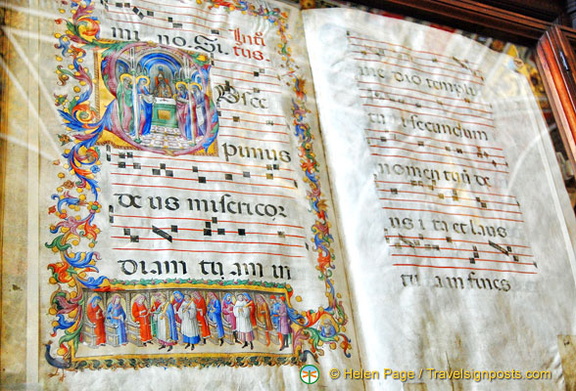 Inti
mi no. Si. tus.
Vsce
pimus
de us misericor
diam tu am in
me dio templi
tu i secundum
nomen tuū de
us i ta et laus
tu a in fines
© Helen Page / Travelsignposts.com